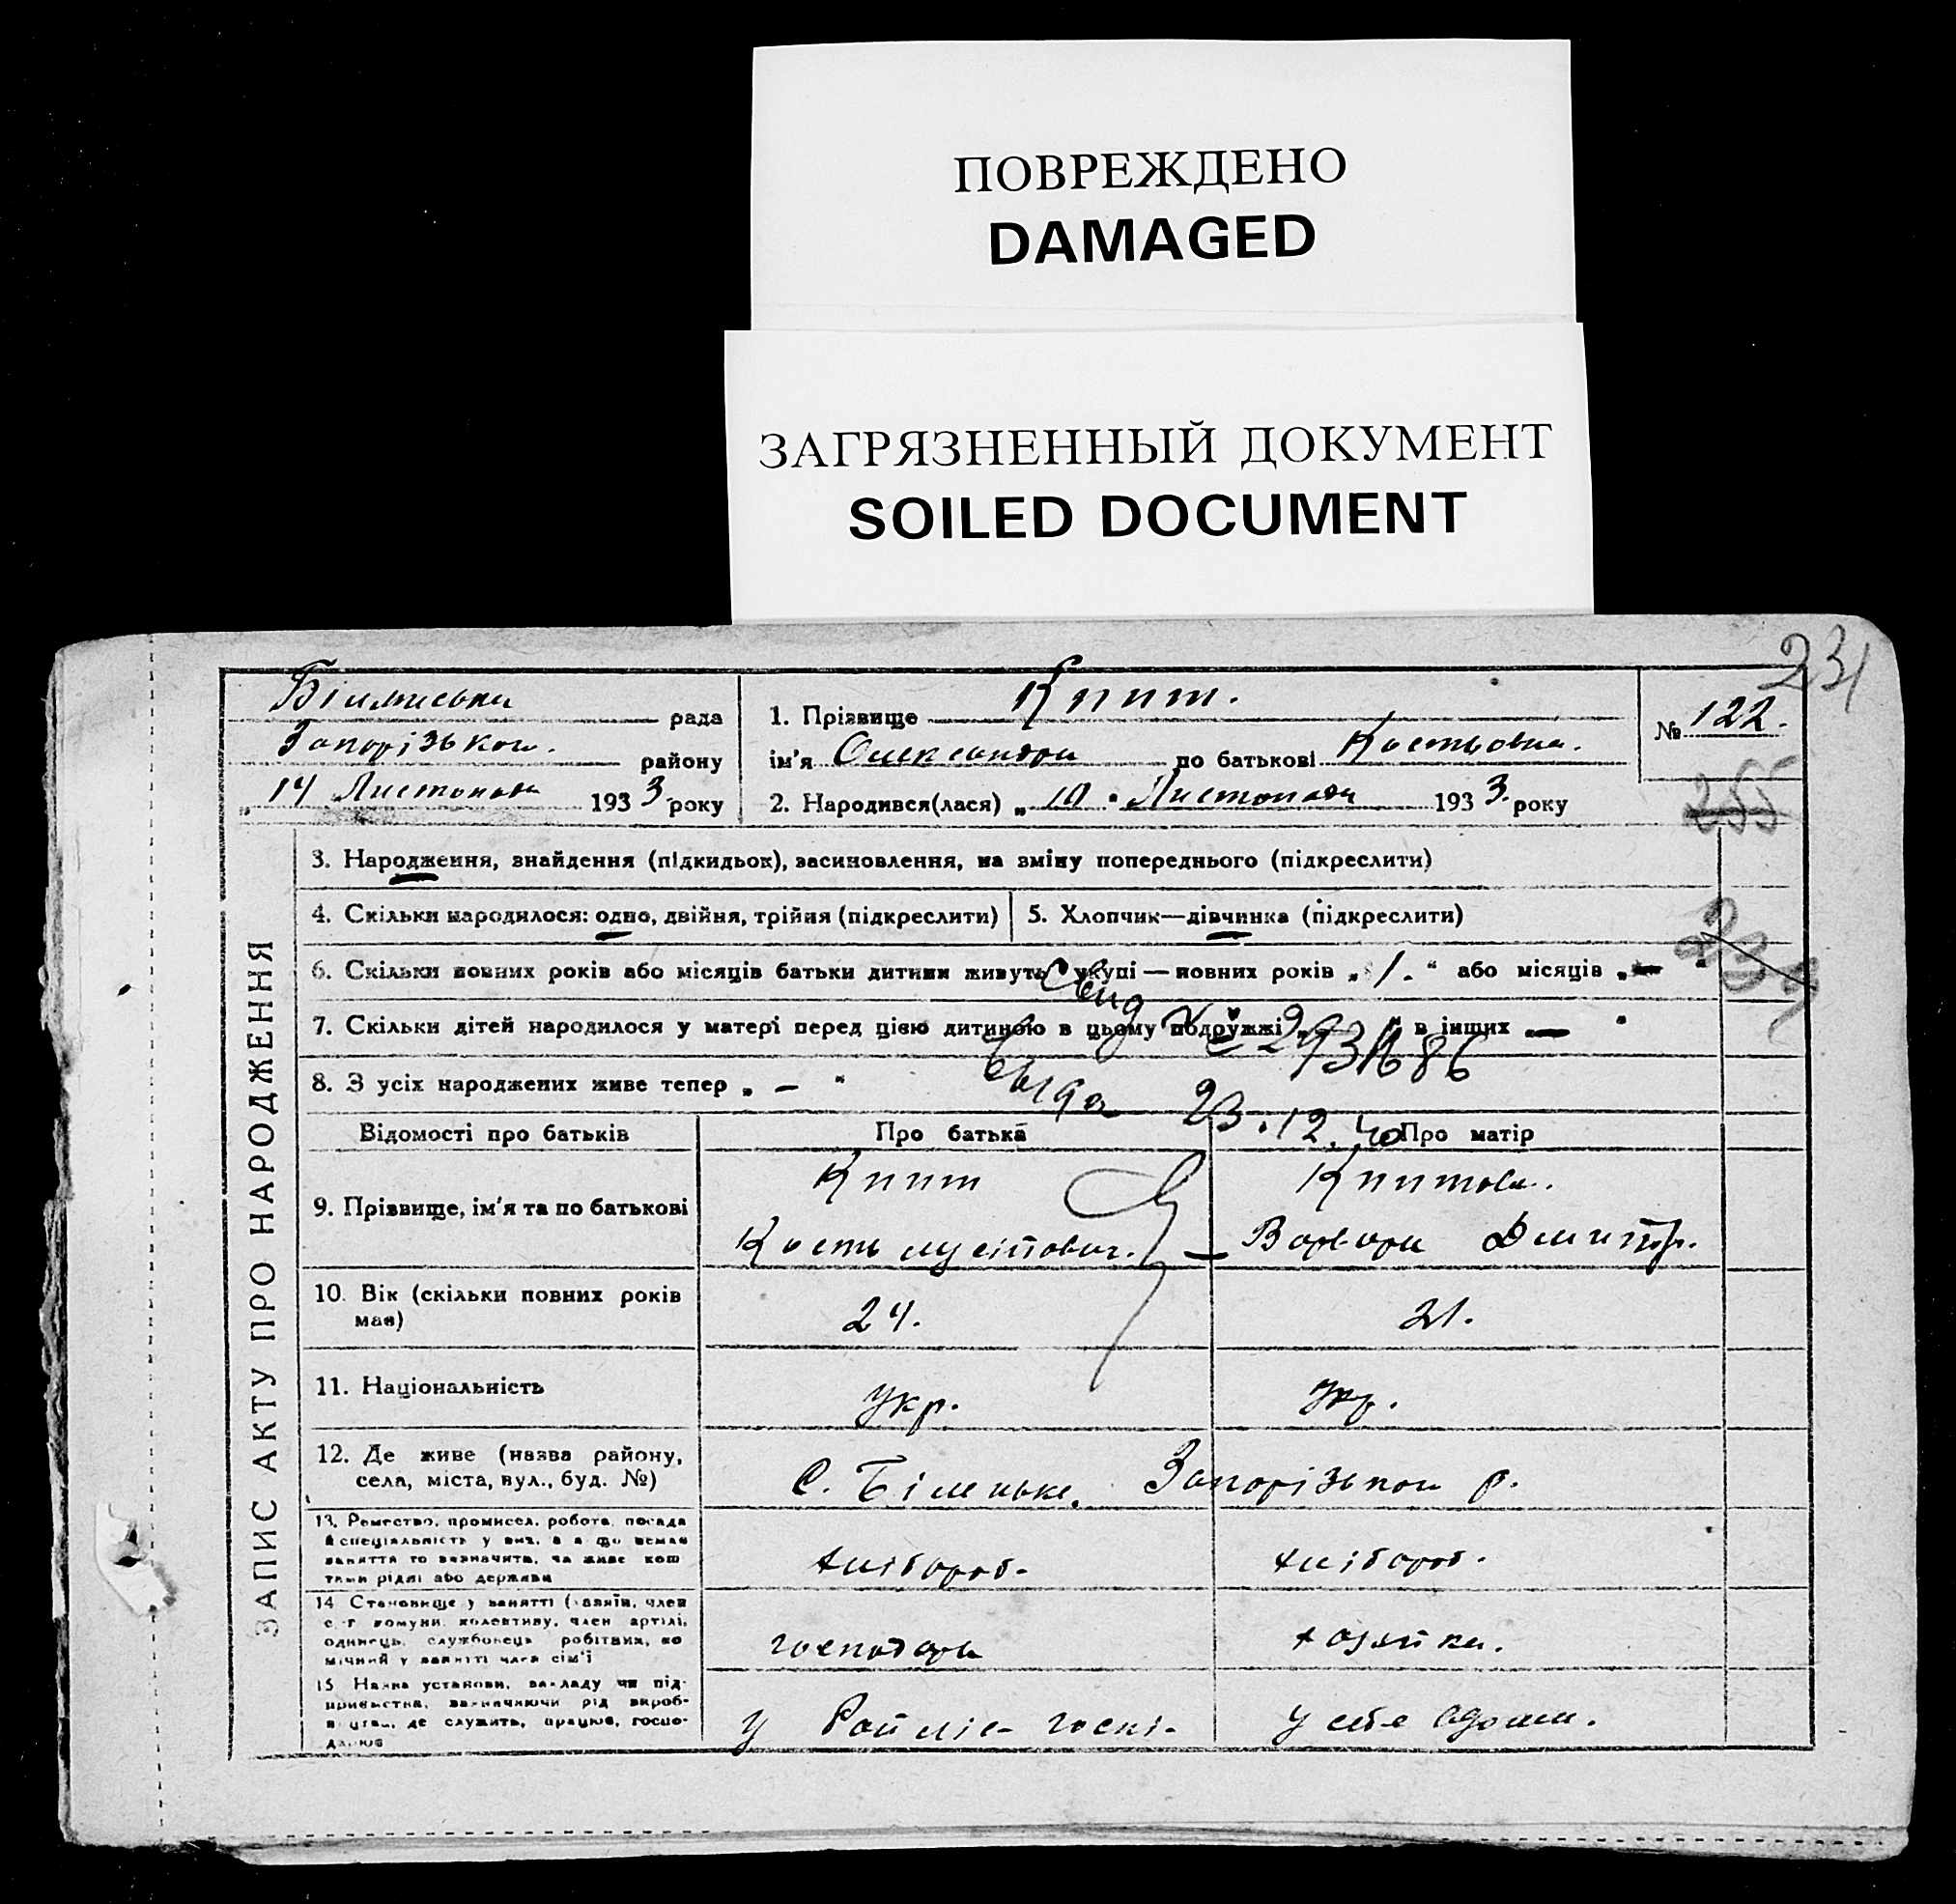 ПОВРЕЖДЕНО
DAMAGED
ЗАГРЯЗНЕННЫЙ ДОКУМЕНТ
SOILED DOCUMENT
231
Біленська рада
Запорізького району
„ 14 Листопада 1933 року
1. Прізвище Кпит.
ім'я Олександра по батькові Костьовна.
2. Народився(лася) „ 10 " Листопада 1933 року
№ 122.
255
ЗАПИС АКТУ ПРО НАРОДЖЕННЯ
3. Народження, знайдення (підкидьок), засиновлення, на зміну попереднього (підкреслити)
4. Скільки народилося: одно, двійня, трійня (підкреслити)
5. Хлопчик—дівчинка (підкреслити)
6. Скільки повних років або місяців батьки дитини живуть укупі — повних років „ 1. " або місяців „ — "
7. Скільки дітей народилося у матері перед цією дитиною в цьому подружжі „ — " в інших „ — "
8. З усіх народжених живе тепер „ — "
23.12.40
Відомості про батьків
Про батька
Про матір
9. Прізвище, ім'я та по батькові
Кпит
Кость Мусійович.
Кпитова.
Варвара Дмитр.
10. Вік (скільки повних років має)
24.
21.
11. Національність
Укр.
Укр.
12. Де живе (назва району,
села, міста, вул., буд. №)
С. Біленьке. Запорізького р.
13. Ремество, промисел, робота, посада
й спеціяльність у них, а якщо немає
заняття то визначити, чи живе кош
тами рідні або держави
хлібороб.
хлібороб.
14 Становище у занятті (хазяїн, член
с.-г комуни, колективу, член артілі,
одинець, службовець робітник, по
мічний у занятті член сім'ї
господарь
хазяйка.
15. Назва установи, закладу чи під-
приємства, зазначаючи рід вироб-
ництва, де служить, працює, госпо-
дарює
у себе вдома.